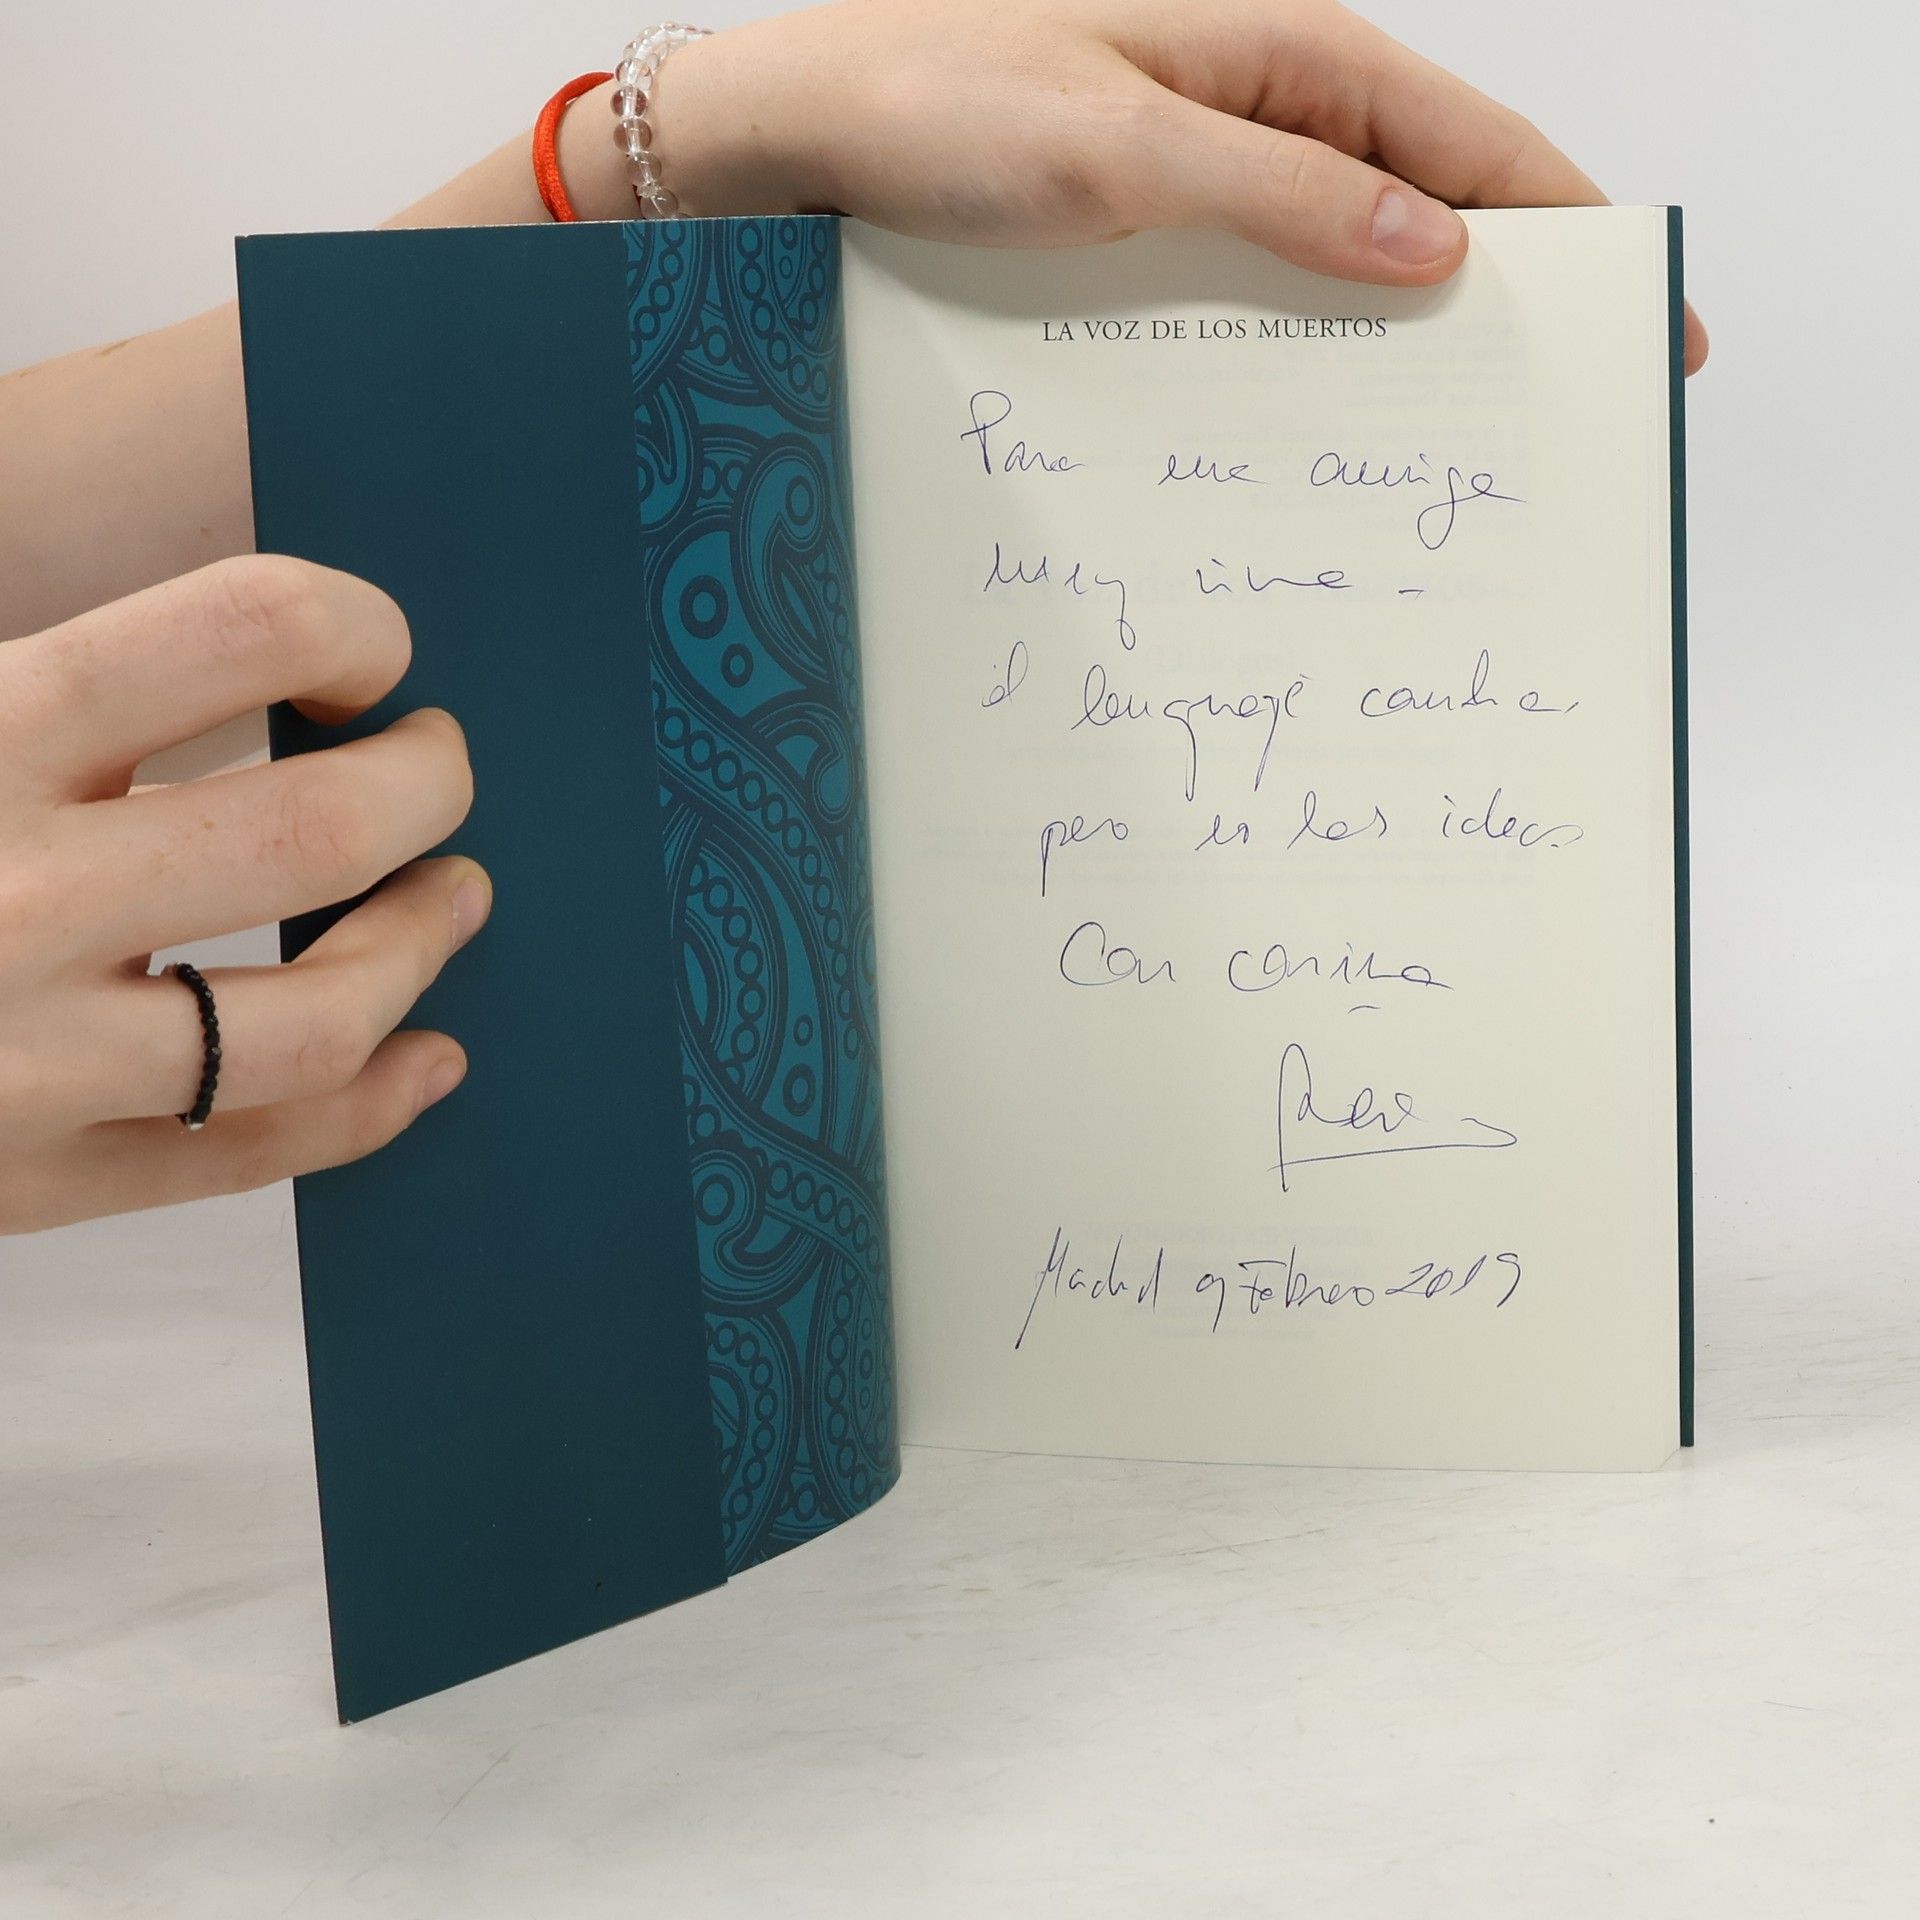 LA VOZ DE LOS MUERTOS
Para una amiga
muy
el lenguaje cambia,
pero no las ideas
Con cariño
Madrid 9 Febrero 2019